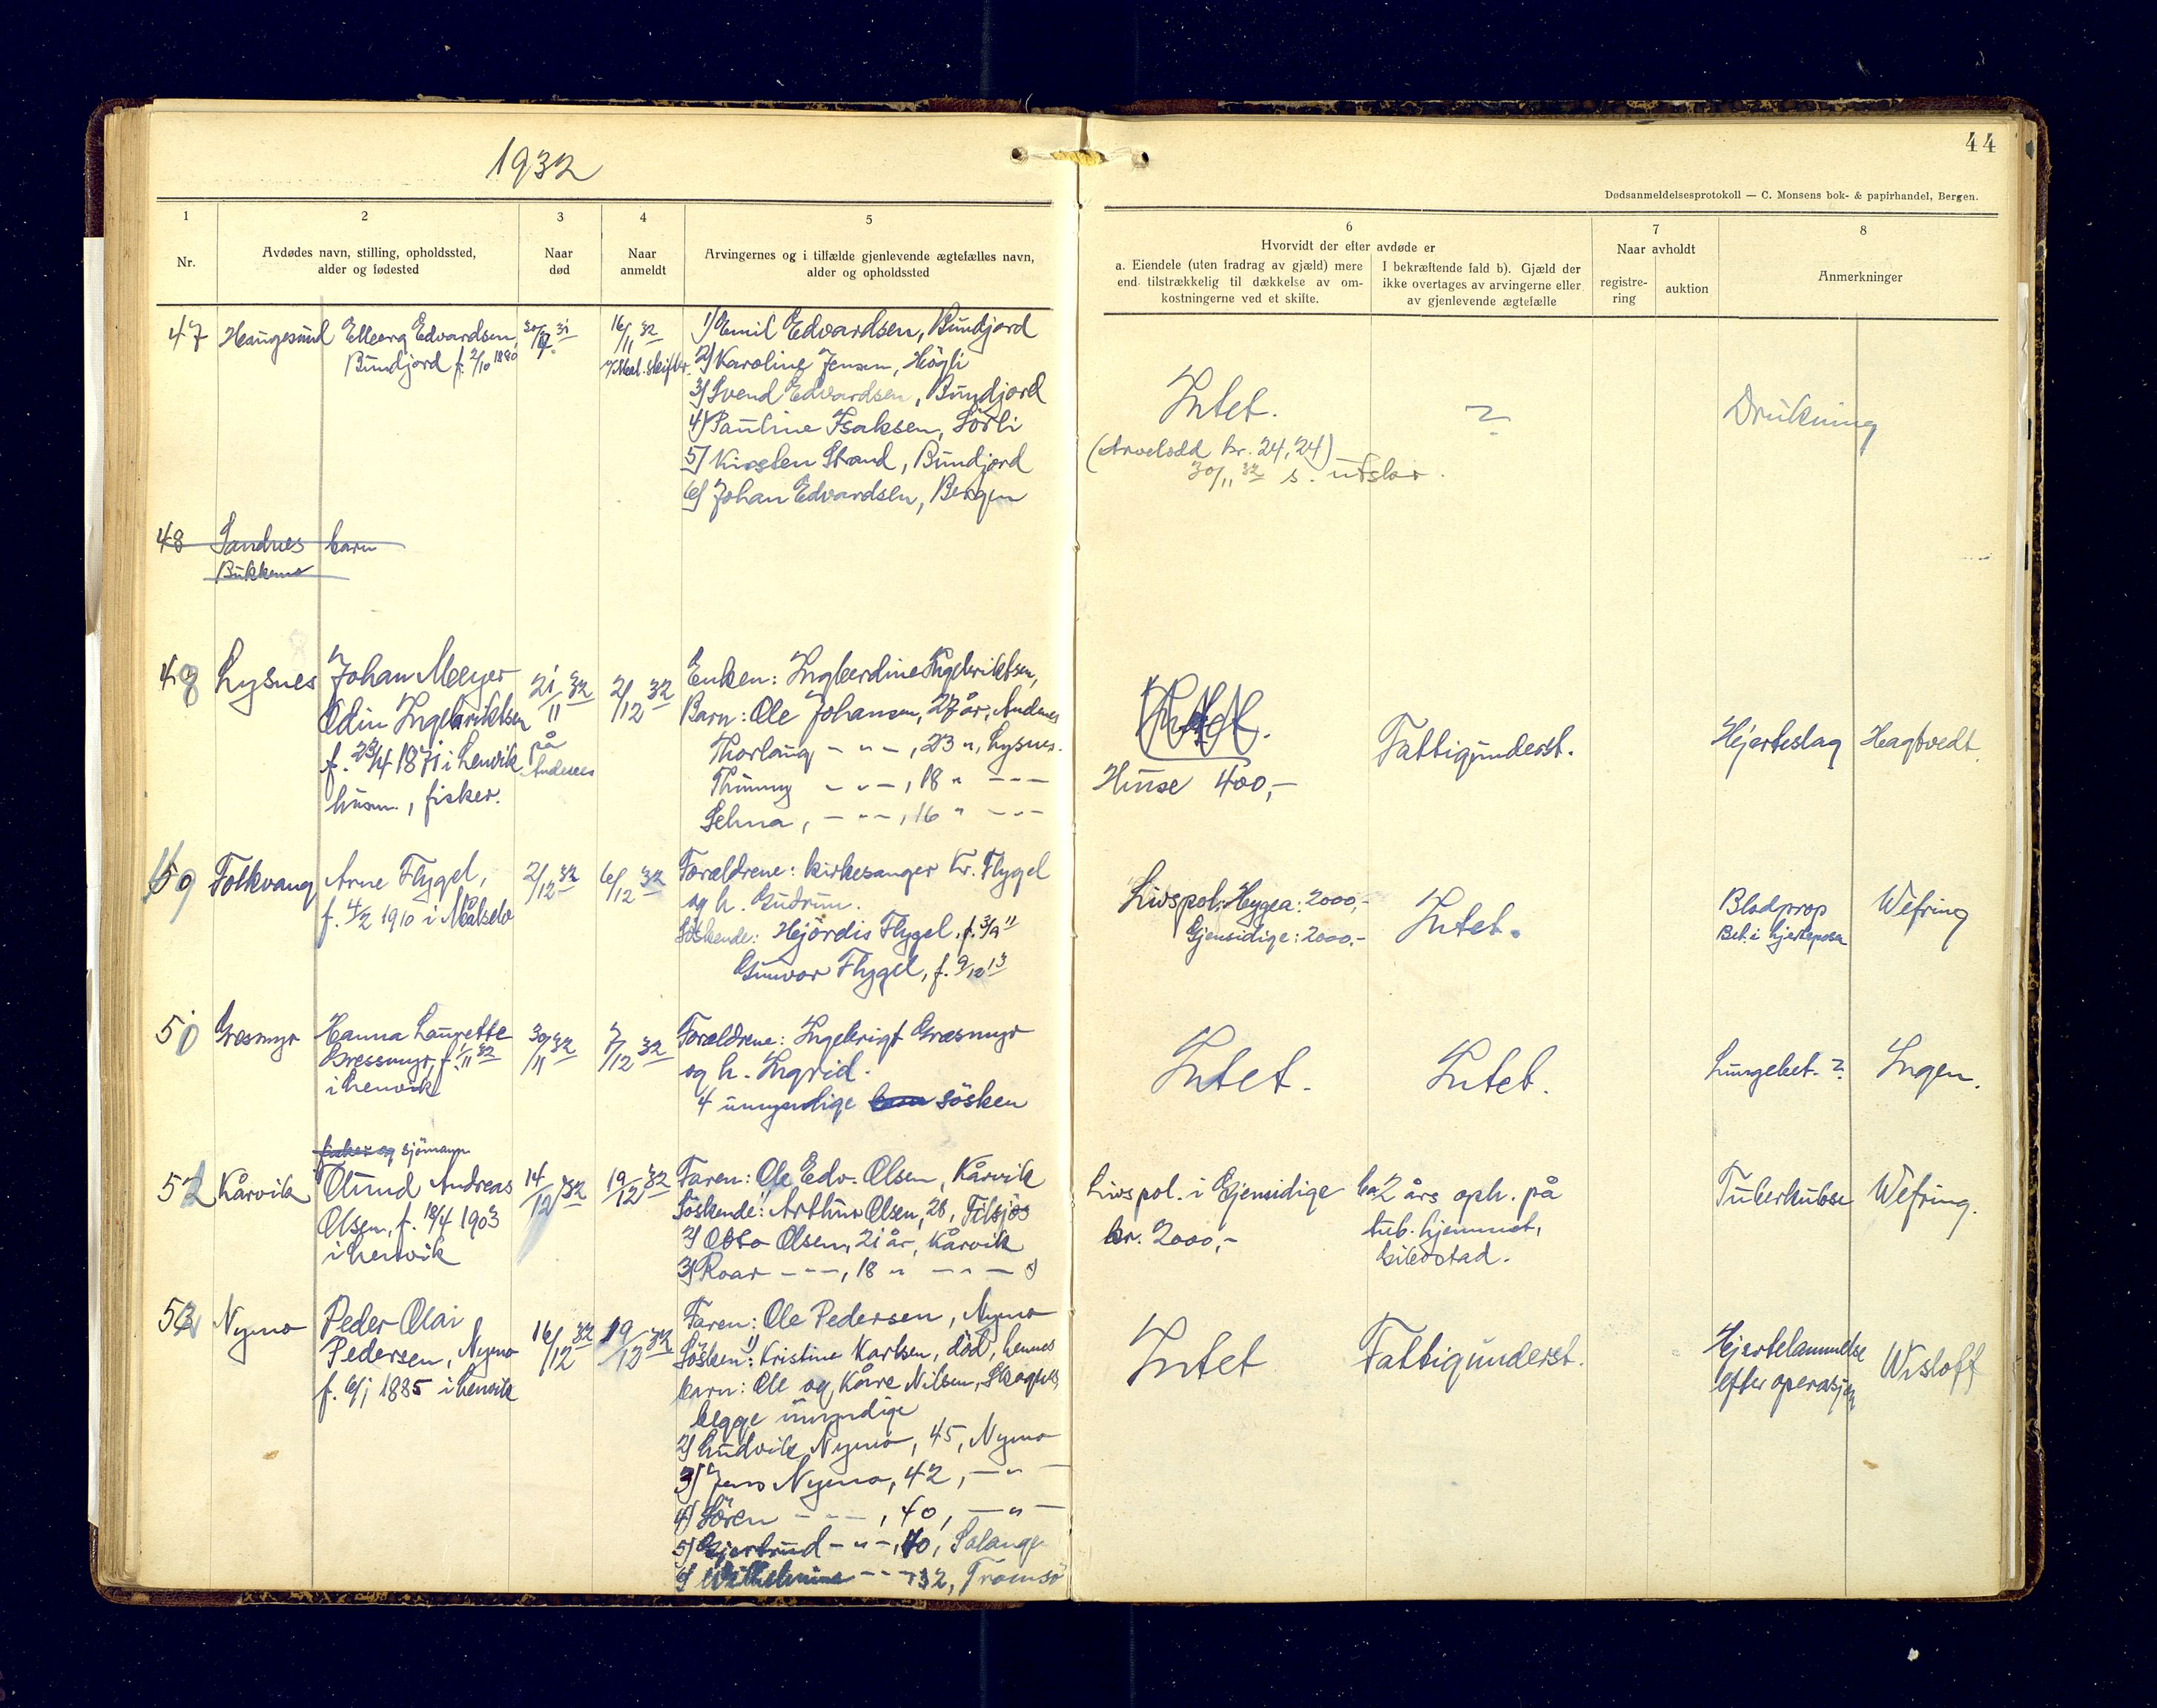 1932
44
Dødsanmeldelsesprotokoll — C. Monsens bok- & papirhandel, Bergen.
1
2
3
4
5
6
7
8
Nr.
Avdødes navn, stilling, opholdssted,
alder og fødested
Naar
død
Naar
anmeldt
Arvingernes og i tilfælde gjenlevende ægtefælles navn,
alder og opholdssted
Hvorvidt der efter avdøde er
a. Eiendele (uten fradrag av gjæld) mere
end tilstrækkelig til dækkelse av om-
kostningerne ved et skifte.
I bekræftende fald b). Gjæld der
ikke overtages av arvingerne eller
av gjenlevende ægtefælle
Naar avholdt
registre-
ring
auktion
Anmerkninger
47 Haugesund Edvardsen,
Bundjord f. 2/10 1880
16/11 32
1) Emil Edvardsen, Bundjord
2) Karoline Jensen, Høgli
3) Svend Edvardsen, Bundjord
4) Pauline Isaksen, Sørli
5) Kirsten Strand, Bundjord
6) Johan Edvardsen, Bergen
Intet.
(Arvelodd kr. 24,24)
30/11 32 s. utskr.
?
Drukning
48 Sandnes barn
Bukkemo
48 Lysnes Johan Meyer
Odin Ingebriktsen
f. 1871 i Lenvik
husm., fisker.
21/11 32
på
Andenes
2/12 32
Enken: Ingeberdine Ingebriktsen,
Barn: Ole Johansen, 27 år, Andenes
Thorlaug - " - , 23 ", Lysnes.
- " - , 18 " - " -
Selma, - " - , 16 " - " -
Huse 400,-
Fattigunderst.
Hjerteslag Hagtvedt.
49 Folkvang Arne Flygel,
f. 4/2 1910 i Målselv
2/12 32
6/12 32
Forældrene: kirkesanger Kr. Flygel
og h. Gudrun.
Søskende: Hjördis Flygel, f. 3/9 11
Gunvor Flygel, f. 9/12 13
Livspol. Hygea: 2000,-
Gjensidige: 2000.-
Intet.
Blodprop
Bet. i hjerteposen
Wefring
50 Gresmyr Hanna Laurette
Gressmyr, f. 1/11 32
i Lenvik
30/11 32
7/12 32
Forældrene: Ingebrigt Græsmyr
og h. Ingrid.
4 umyndige barn søsken
Intet.
Intet.
Lungebet. ?
Ingen.
fisker og sjömann
51 Kårvik Andreas
Olsen, f. 18/4 1903
i Lenvik
14/12 32
19/12 32
Faren: Ole Edv. Olsen, Kårvik
Søskende: 1) Arthur Olsen, 26,
2) Otto Olsen, 21 år, Kårvik
3) Roar - " - , 18 " - " -
Livspol. i Gjensidige
kr. 2000,-
ca 2 års oph. på
tub. hjemmet,
Gibostad.
Tuberkulose
Wefring.
52 Nymo Peder Olai
Pedersen, Nymo
f. 6/1 1885 i Lenvik
16/12 32
19/12 32
Faren: Ole Pedersen, Nymo
Søsken: 1) Kristine Karlsen, död, hennes
barn: Ole og Kåre Nilsen,
begge umyndige
2) Ludvik Nymo, 45, Nymo
3) Jens Nymo, 42, - " -
4) Sören - " - , 40, - " -
5) Gjertrud - " - , 40, Salangen
6) Wilhelmine - " - 32, Tromsö
Intet
Fattigunderst.
Hjertelammelse
efter operasjon
Wisloff